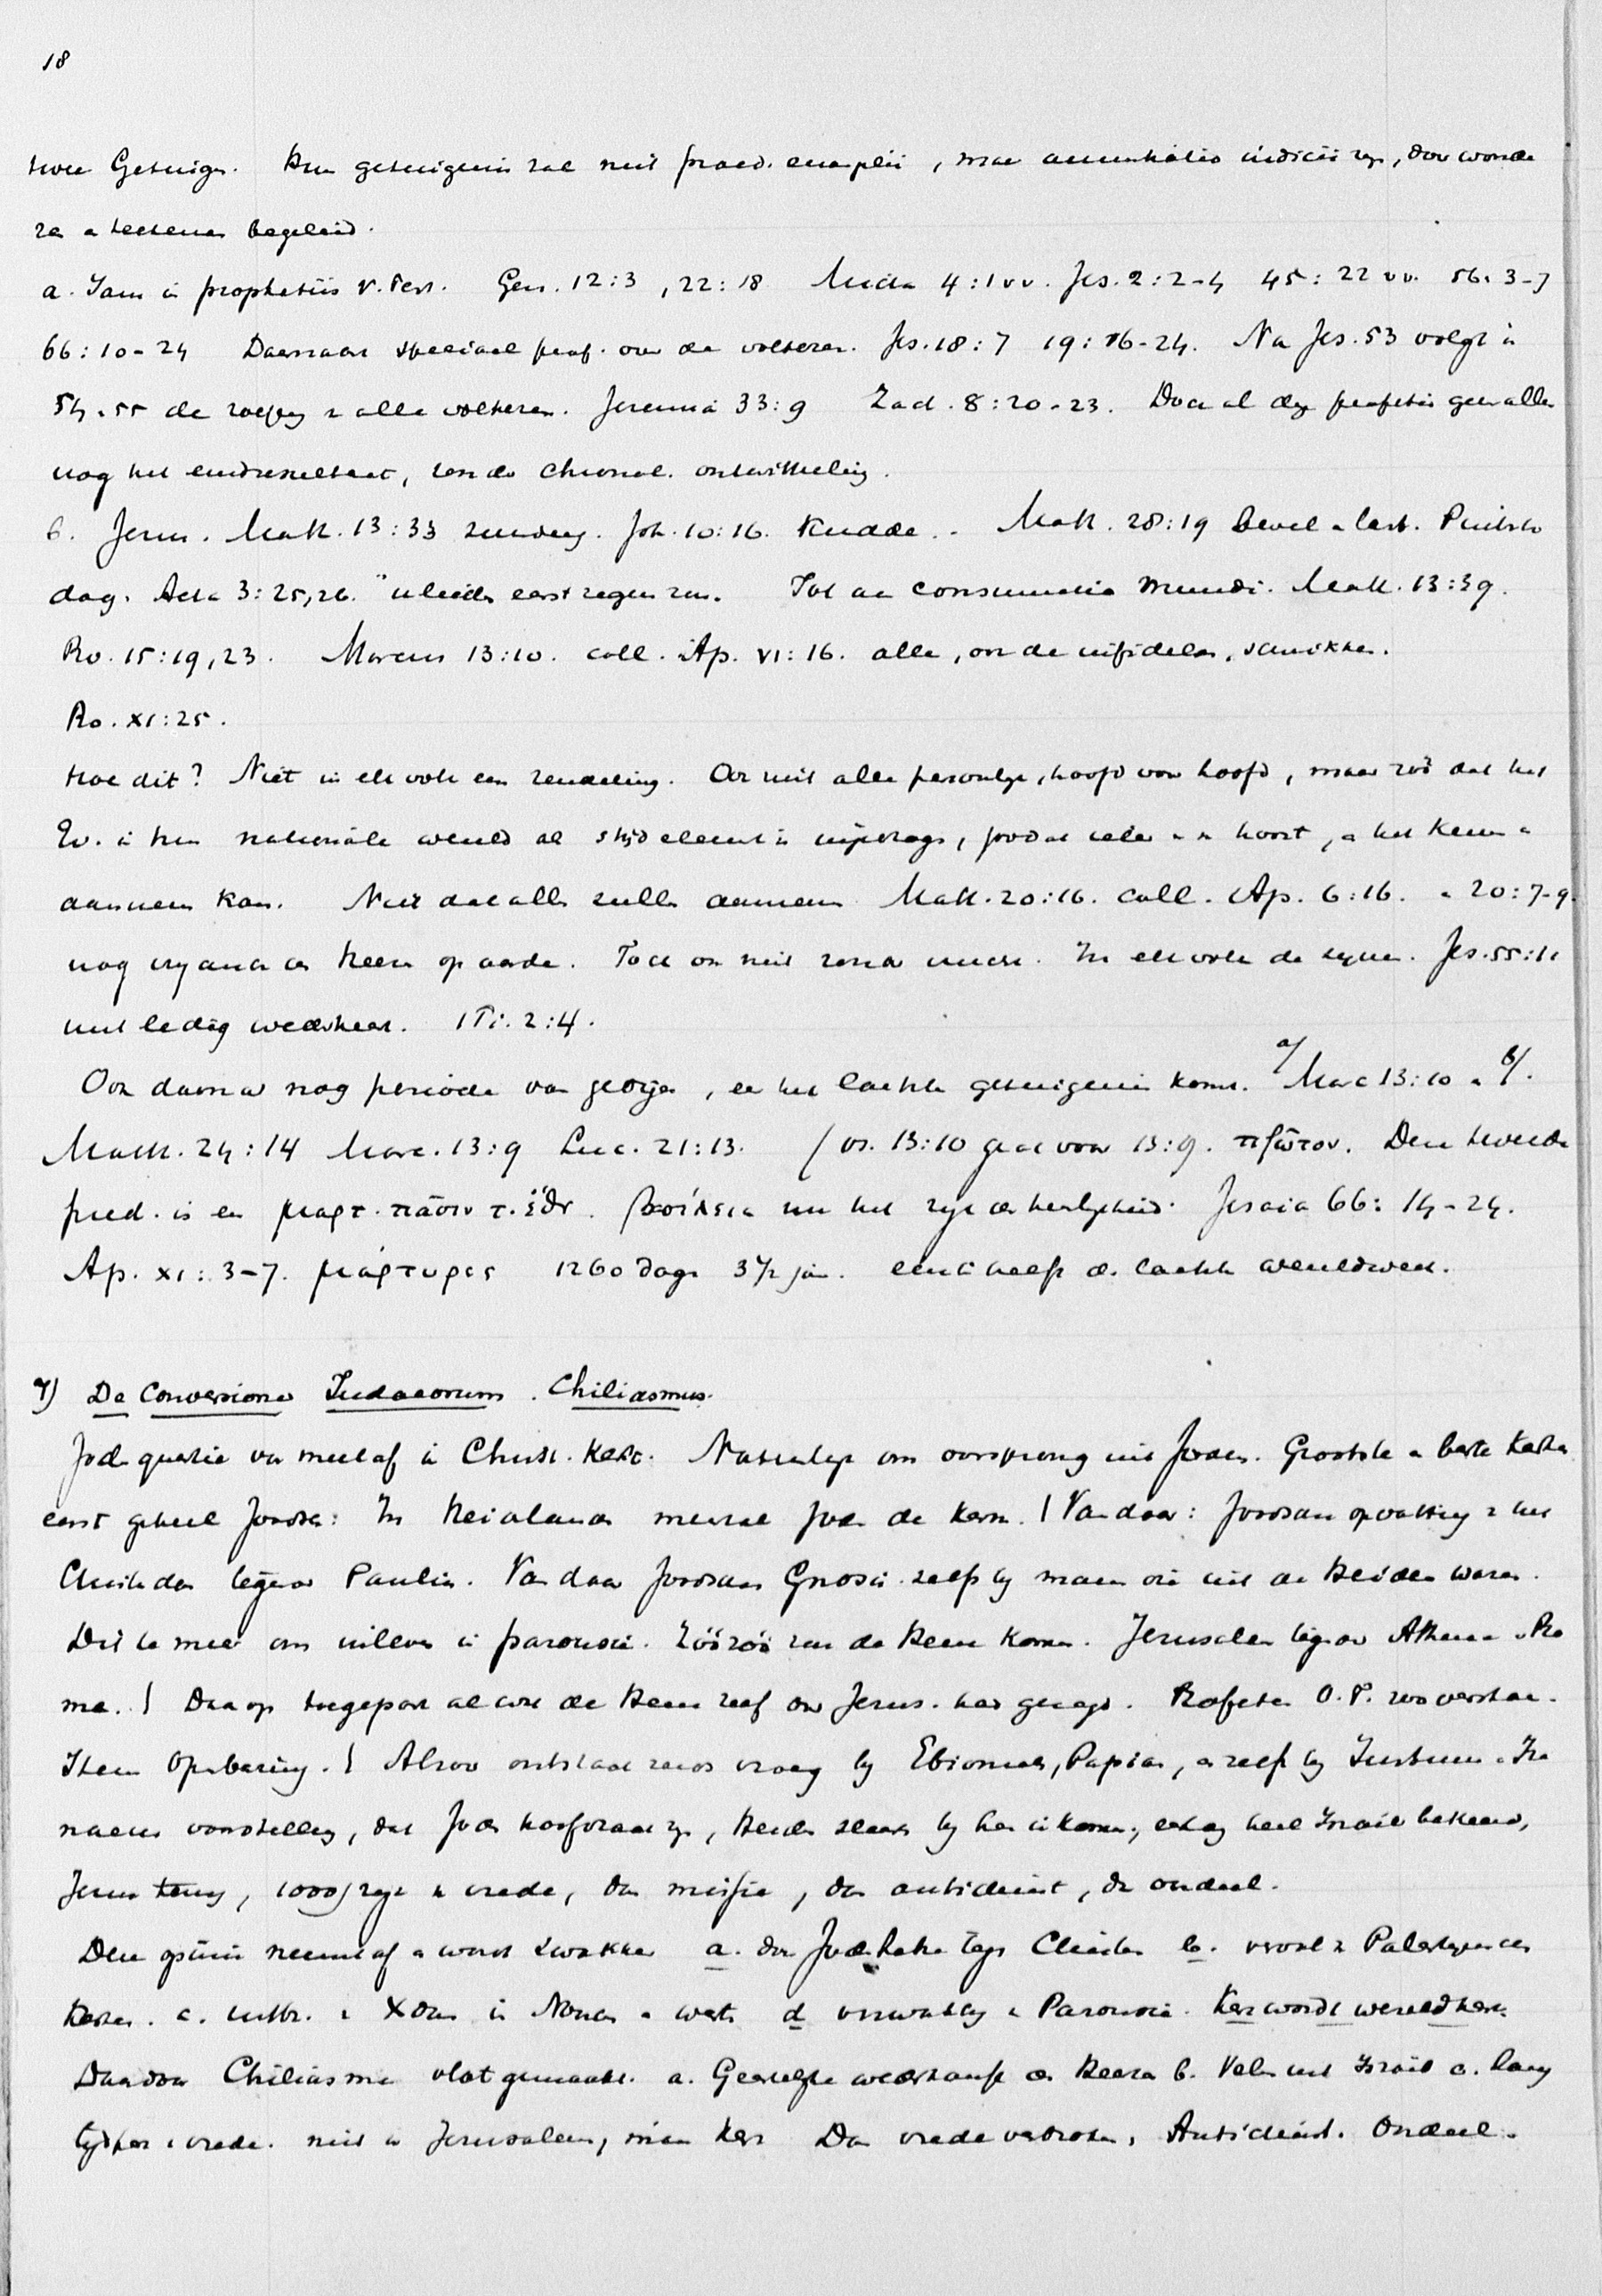 18
twee Getuigen. Hun getuigenis zal niet praed. euangelii, maar annuntiatio iudicii zijn, door wonde
ren en teekenen begeleid.
a. Jam in prophetiis V. Test. Gen. 12:3, 22:18 Micha 4:1 vv. Jes. 2:2-4 45:22 vv. 56:3-7
66:10-24 Daarnaast speciaal prof. over de volkeren. Jes. 18:7 19:16-24. Na Jes. 53 volgt in
54.55 de roeping v alle volkeren. Jeremia 33:9 Zach. 8:20-23. Doch al deze profetieën geven alleen
nog het eindresultaat, zonder chronol. ontwikkeling.
b. Jezus. Matt. 13:33 zuurdeeg. Joh. 10:16. Kudde. Matt. 28:19 bevel en last. Pinkster
dag. Acta 3:25,26. ulieden eerst zegenen. Tot aan consummatio mundi. Matt. 13:39.
Ro. 15:19,23. Marcus 13:10. coll. Ap. VI:16. alle, ook de infidelen, schrikken.
Ro. XI:25.
Hoe dit? Niet in elk volk een zendeling. Ook niet alle persoonlijk, hoofd voor hoofd, maar zoo dat het
Ev. in hun nationale wereld als strijdelement is ingedragen, zoodat ieder er v hoort, en het kennen en
aannemen kan. Niet dat allen zullen aannemen Matt. 20:16. coll. Ap. 6:16. en 20:7-9.
nog vijanden des Heeren op aarde. Toch ook niet zonder vrucht. In elk volk de zijnen. Jes. 55:11
niet ledig wederkeeren. 1 Ti. 2:4.
Ook daarna nog periode van getuigen, en het laatste getuigenis komt. a/ Marc 13:10 en b/.
Matth. 24:14 Marc. 13:9 Luc. 21:13. / vs. 13:10 gaat voor 13:9. πρῶτον. Deze tweede
pred. is een μαρτ. πᾶσιν τ. ἔθν. βασίλεια nu het rijk der heerlijkheid. Jesaia 66:14-24.
Ap. XI:3-7. μάρτυρες 1260 dagen 3½ jaar. eerste helft der laatste wereldweek.
7) De Conversione Iudaeorum. Chiliasmus.
Joden quaestie van meet af in Christ. Kerk. Natuurlijk om oorsprong uit Joden. Grootste en beste kerken
eerst geheel Joodsch: In Heidenlanden meestal Joden de kern. / Vandaar: Joodsche opvatting v het
Christendom tegenover Paulin. Vandaar Joodsche Gnosis zelfs bij mannen die uit de Heidenen waren.
Dit te meer om inleven in parousie. Zóó zóó zou de Heere komen. Jeruzalem tegenover Athene en Ro
me. / Daarop toegepast al wat de Heere zelf over Jerus. had gezegd. Profeten O.T. zoo verstaan.
Idem Openbaring. / Alzoo ontstaat reeds vroeg bij Ebionieten, Papias, en zelfs bij Justinus en Ire
naeus voorstelling, dat Joden hoofdzaak zijn, Heidenen slechts bij hen inkomen, eerlang heel Israël bekeerd,
Jeruz terug, 1000j rijk v vrede, dan missie, dan antichrist, dan oordeel.
Deze opinie neemt af en wordt zwakker a. door Jodenhaat tegen Christen b. verval v Palestijnsche
kerken. c. uitbr. v Xdom in Noorden en westen d verwachting v Parousie. Kerk wordt wereldkerk
Daardoor Chiliasme vlot gemaakt. a. Geestelijke wederkomst des Heeren b. Velen uit Israël c. lang
tijdperk v vrede. niet in Jeruzalem, maar kerk Dan vrede verbroken, Antichrist. Oordeel.